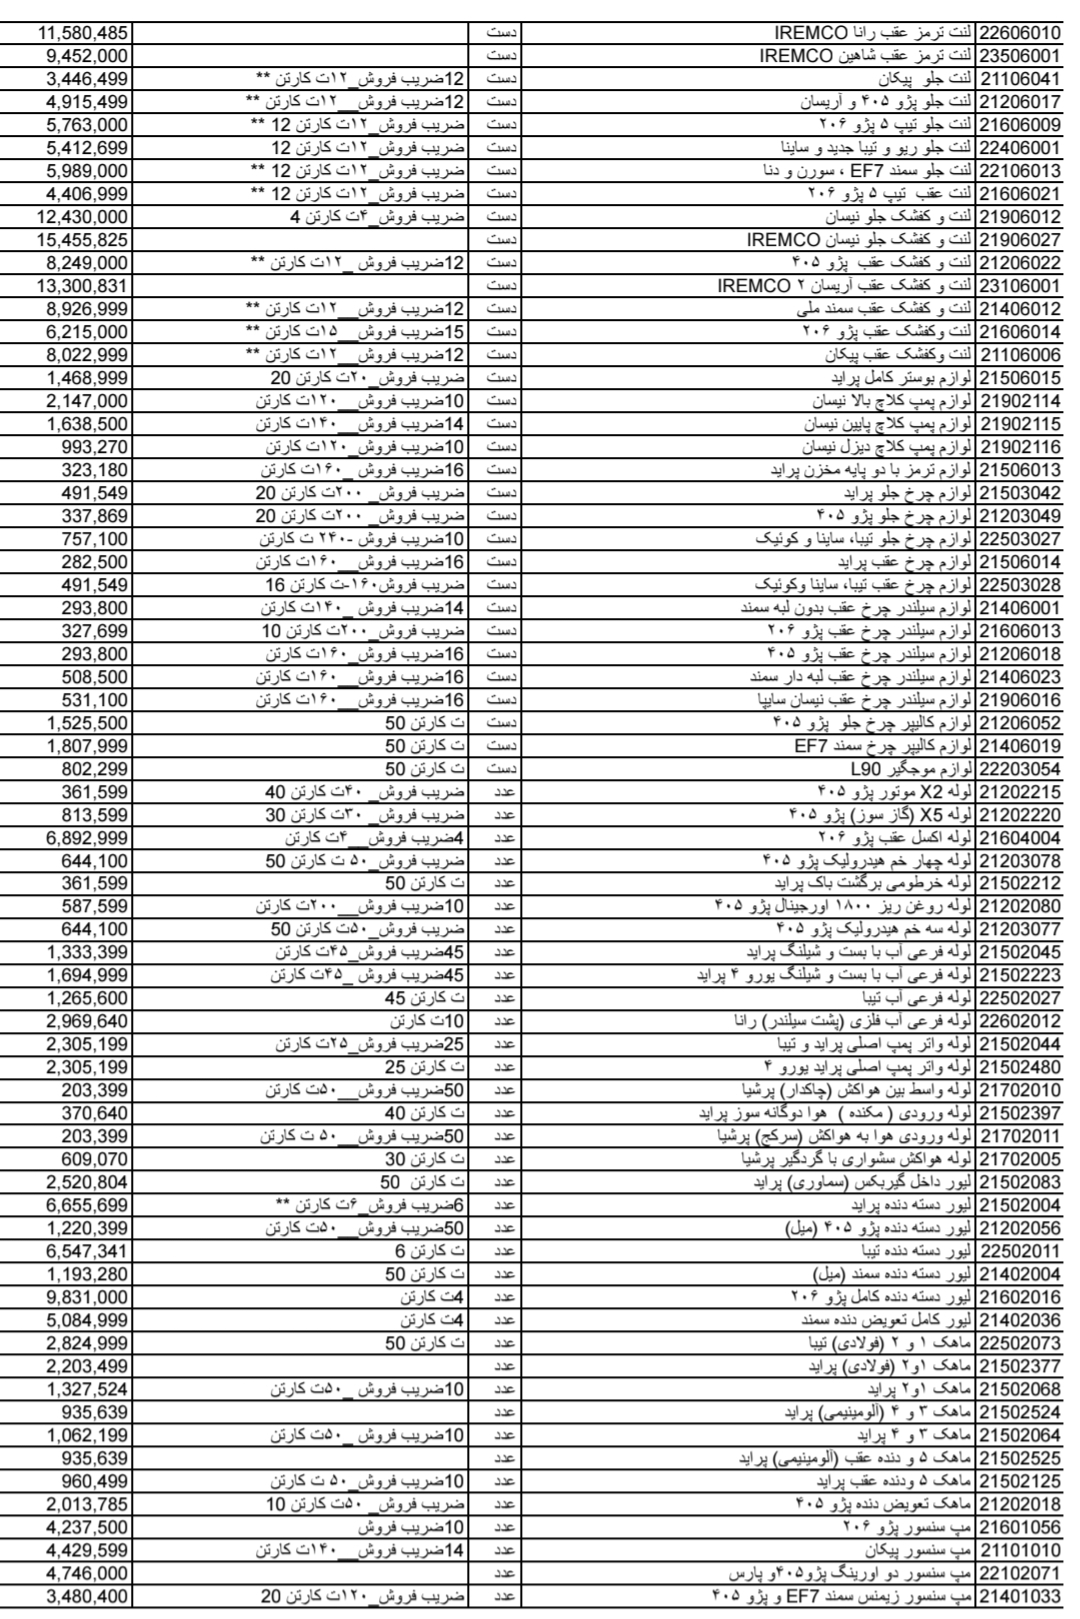 22606010 لنت ترمز عقب رانا IREMCO دست 11,580,485
23506001 لنت ترمز عقب شاهین IREMCO دست 9,452,000
21106041 لنت جلو پیکان دست 12ضریب فروش_ ۱۲ت کارتن ** 3,446,499
21206017 لنت جلو پژو ۴۰۵ و آریسان دست 12ضریب فروش__۱۲ت کارتن ** 4,915,499
21606009 لنت جلو تیپ ۵ پژو ۲۰۶ دست ضریب فروش_۱۲ت کارتن 12 ** 5,763,000
22406001 لنت جلو ریو و تیبا جدید و ساینا دست ضریب فروش_۱۲ت کارتن 12 5,412,699
22106013 لنت جلو سمند EF7 ، سورن و دنا دست ضریب فروش_۱۲ت کارتن 12 ** 5,989,000
21606021 لنت عقب تیپ ۵ پژو ۲۰۶ دست ضریب فروش_۱۲ت کارتن 12 ** 4,406,999
21906012 لنت و کفشک جلو نیسان دست ضریب فروش_۴ت کارتن 4 12,430,000
21906027 لنت و کفشک جلو نیسان IREMCO دست 15,455,825
21206022 لنت و کفشک عقب پژو ۴۰۵ دست 12ضریب فروش _۱۲ت کارتن ** 8,249,000
23106001 لنت و کفشک عقب آریسان ۲ IREMCO دست 13,300,831
21406012 لنت و کفشک عقب سمند ملی دست 12ضریب فروش__۱۲ت کارتن ** 8,926,999
21606014 لنت وکفشک عقب پژو ۲۰۶ دست 15ضریب فروش_ ۱۵ت کارتن ** 6,215,000
21106006 لنت وکفشک عقب پیکان دست 12ضریب فروش__۱۲ت کارتن ** 8,022,999
21506015 لوازم بوستر کامل پراید دست ضریب فروش_۲۰ت کارتن 20 1,468,999
21902114 لوازم پمپ کلاچ بالا نیسان دست 10ضریب فروش__۱۲۰ت کارتن 2,147,000
21902115 لوازم پمپ کلاچ پایین نیسان دست 14ضریب فروش__۱۴۰ت کارتن 1,638,500
21902116 لوازم پمپ کلاچ دیزل نیسان دست 10ضریب فروش_۱۲۰ت کارتن 993,270
21506013 لوازم ترمز با دو پایه مخزن پراید دست 16ضریب فروش _۱۶۰ت کارتن 323,180
21503042 لوازم چرخ جلو پراید دست ضریب فروش_ ۲۰۰ت کارتن 20 491,549
21203049 لوازم چرخ جلو پژو ۴۰۵ دست ضریب فروش_ ۲۰۰ت کارتن 20 337,869
22503027 لوازم چرخ جلو تیبا، ساینا و کوئیک دست 10ضریب فروش -۲۴۰ ت کارتن 757,100
21506014 لوازم چرخ عقب پراید دست 16ضریب فروش_ ۱۶۰ت کارتن 282,500
22503028 لوازم چرخ عقب تیبا، ساینا وکوئیک دست ضریب فروش۱۶۰-ت کارتن 16 491,549
21406001 لوازم سیلندر چرخ عقب بدون لبه سمند دست 14ضریب فروش _۱۴۰ت کارتن 293,800
21606013 لوازم سیلندر چرخ عقب پژو ۲۰۶ دست ضریب فروش_۲۰۰ت کارتن 10 327,699
21206018 لوازم سیلندر چرخ عقب پژو ۴۰۵ دست 16ضریب فروش_۱۶۰ت کارتن 293,800
21406023 لوازم سیلندر چرخ عقب لبه دار سمند دست 16ضریب فروش__۱۶۰ت کارتن 508,500
21906016 لوازم سیلندر چرخ عقب نیسان سایپا دست 16ضریب فروش_ ۱۶۰ت کارتن 531,100
21206052 لوازم کالیپر چرخ جلو پژو ۴۰۵ دست ت کارتن 50 1,525,500
21406019 لوازم کالیپر چرخ سمند EF7 دست ت کارتن 50 1,807,999
22203054 لوازم موجگیر L90 دست ت کارتن 50 802,299
21202215 لوله X2 موتور پژو ۴۰۵ عدد ضریب فروش_ ۴۰ت کارتن 40 361,599
21202220 لوله X5 (گاز سوز) پژو ۴۰۵ عدد ضریب فروش_ ۳۰ت کارتن 30 813,599
21604004 لوله اکسل عقب پژو ۲۰۶ عدد 4ضریب فروش__ ۴ت کارتن 6,892,999
21203078 لوله چهار خم هیدرولیک پژو ۴۰۵ عدد ضریب فروش_۵۰ ت کارتن 50 644,100
21502212 لوله خرطومی برگشت باک پراید عدد ت کارتن 50 361,599
21202080 لوله روغن ریز ۱۸۰۰ اورجینال پژو ۴۰۵ عدد 10ضریب فروش__۲۰۰ت کارتن 587,599
21203077 لوله سه خم هیدرولیک پژو ۴۰۵ عدد ضریب فروش_۵۰ت کارتن 50 644,100
21502045 لوله فرعی آب با بست و شیلنگ پراید عدد 45ضریب فروش_۴۵ت کارتن 1,333,399
21502223 لوله فرعی آب با بست و شیلنگ یورو ۴ پراید عدد 45ضریب فروش _۴۵ت کارتن 1,694,999
22502027 لوله فرعی آب تیبا عدد ت کارتن 45 1,265,600
22602012 لوله فرعی آب فلزی (پشت سیلندر) رانا عدد 10ت کارتن 2,969,640
21502044 لوله واتر پمپ اصلی پراید و تیبا عدد 25ضریب فروش_۲۵ت کارتن 2,305,199
21502480 لوله واتر پمپ اصلی پراید یورو ۴ عدد ت کارتن 25 2,305,199
21702010 لوله واسط بین هواکش (چاکدار) پرشیا عدد 50ضریب فروش__۵۰ت کارتن 203,399
21502397 لوله ورودی ( مکنده ) هوا دوگانه سوز پراید عدد ت کارتن 40 370,640
21702011 لوله ورودی هوا به هواکش (سرکج) پرشیا عدد 50ضریب فروش__۵۰ ت کارتن 203,399
21702005 لوله هواکش سشواری با گردگیر پرشیا عدد ت کارتن 30 609,070
21502083 لیور داخل گیربکس (سماوری) پراید عدد ت کارتن 50 2,520,804
21502004 لیور دسته دنده پراید عدد 6ضریب فروش_۶ت کارتن ** 6,655,699
21202056 لیور دسته دنده پژو ۴۰۵ (میل) عدد 50ضریب فروش__۵۰ت کارتن 1,220,399
22502011 لیور دسته دنده تیبا عدد ت کارتن 6 6,547,341
21402004 لیور دسته دنده سمند (میل) عدد ت کارتن 50 1,193,280
21602016 لیور دسته دنده کامل پژو ۲۰۶ عدد 4ت کارتن 9,831,000
21402036 لیور کامل تعویض دنده سمند عدد 4ت کارتن 5,084,999
22502073 ماهک ۱ و ۲ (فولادی) تیبا عدد ت کارتن 50 2,824,999
21502377 ماهک ۱و۲ (فولادی) پراید عدد 2,203,499
21502068 ماهک ۱و۲ پراید عدد 10ضریب فروش _۵۰ت کارتن 1,327,524
21502524 ماهک ۳ و ۴ (آلومینیمی) پراید عدد 935,639
21502064 ماهک ۳ و ۴ پراید عدد 10ضریب فروش _۵۰ت کارتن 1,062,199
21502525 ماهک ۵ و دنده عقب (آلومینیمی) پراید عدد 935,639
21502125 ماهک ۵ ودنده عقب پراید عدد 10ضریب فروش_ ۵۰ ت کارتن 960,499
21202018 ماهک تعویض دنده پژو ۴۰۵ عدد ضریب فروش_ ۵۰ت کارتن 10 2,013,785
21601056 مپ سنسور پژو ۲۰۶ عدد 10ضریب فروش 4,237,500
21101010 مپ سنسور پیکان عدد 14ضریب فروش__۱۴۰ت کارتن 4,429,599
22102071 مپ سنسور دو اورینگ پژو۴۰۵و پارس عدد 4,746,000
21401033 مپ سنسور زیمنس سمند EF7 و پژو ۴۰۵ عدد ضریب فروش_۱۲۰ت کارتن 20 3,480,400